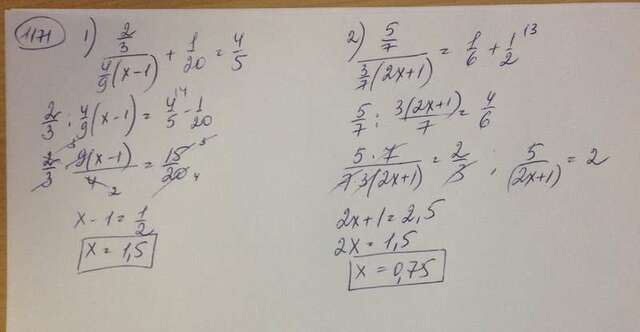 1171
1) (2/3)/(4/9(x-1)) + 1/20 = 4/5
2/3 : 4/9(x-1) = 4/5 \4 - 1/20
2/3 · 9(x-1)/4 = 15/20
x-1 = 1/2
x = 1,5
2) (5/7)/(3/7(2x+1)) = 1/6 + 1/2 \3
5/7 : 3(2x+1)/7 = 4/6
5·7/(7·3(2x+1)) = 2/3 ; 5/(2x+1) = 2
2x+1 = 2,5
2x = 1,5
x = 0,75